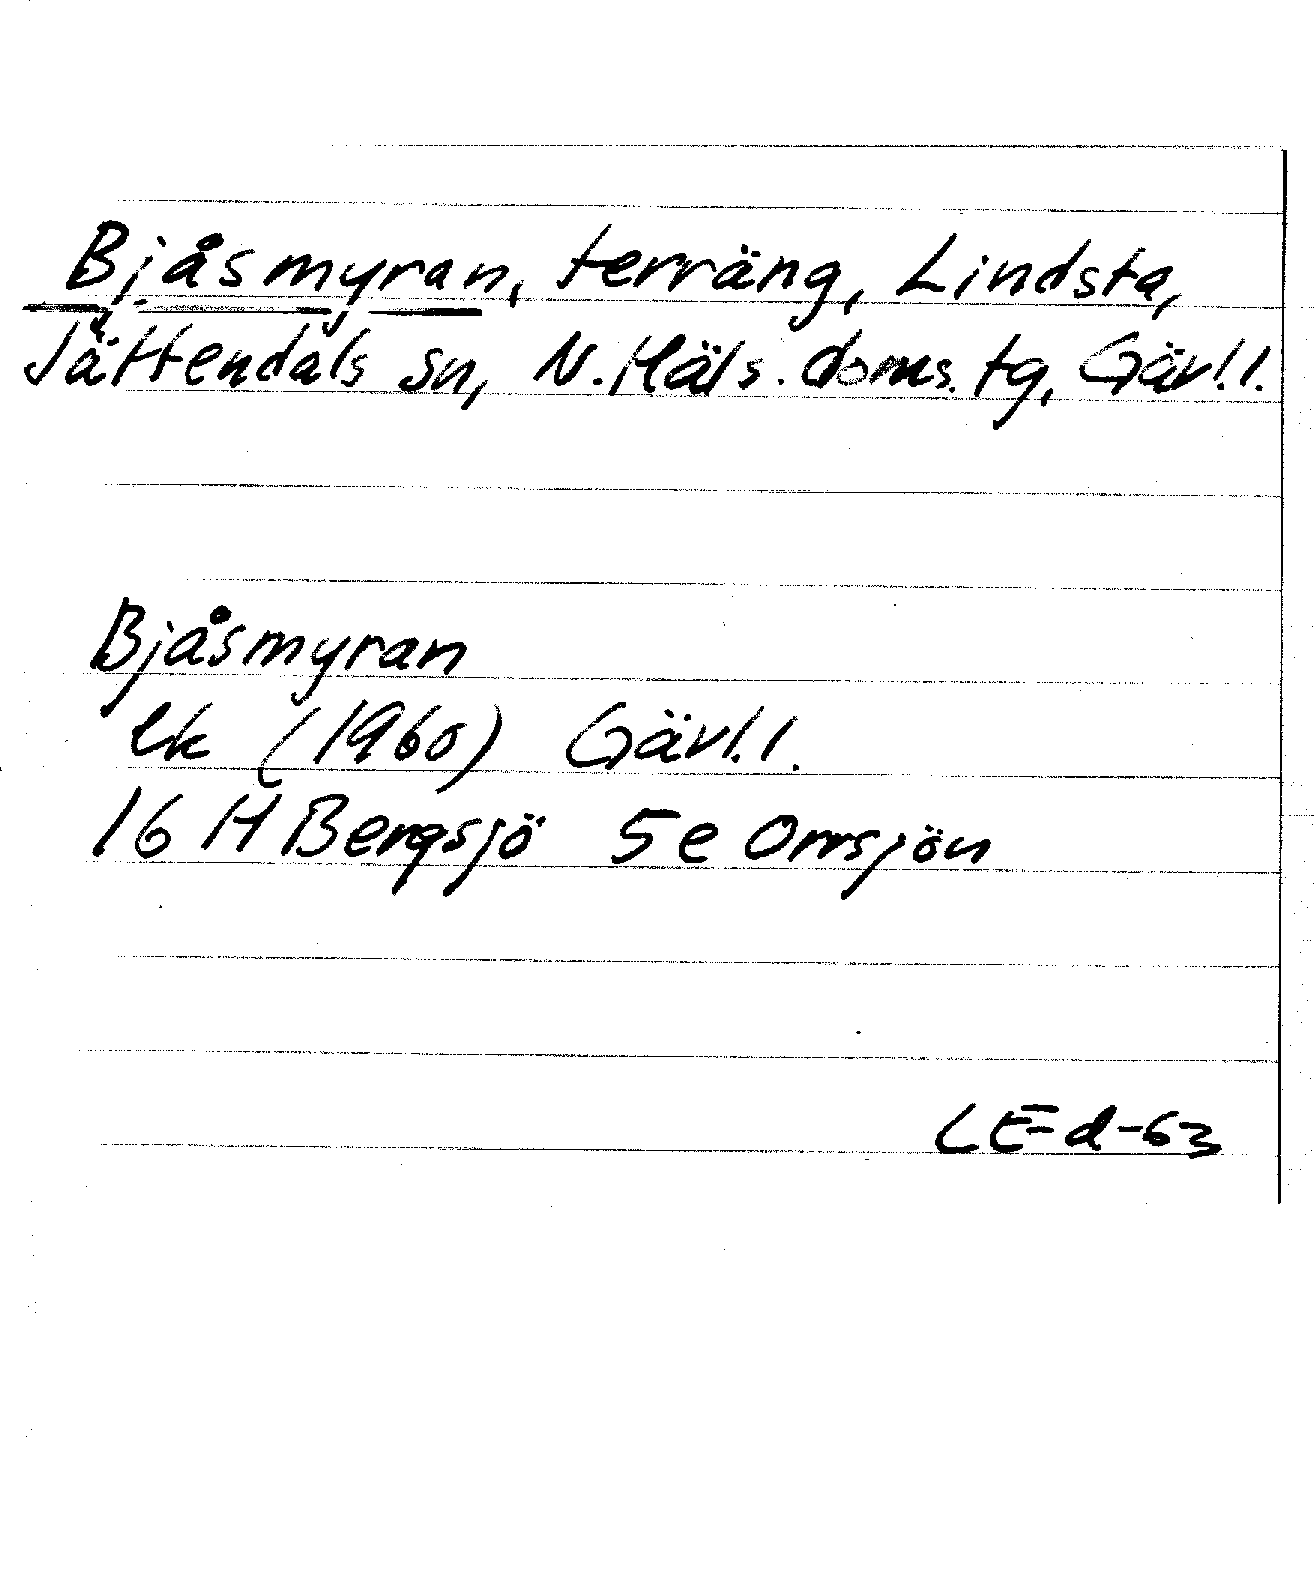 Bjåsmyran, terräng, Lindsta,
Jättendals sn, N. Häls. doms. tg, Gävl. l.
Bjåsmyran
ek (1960) Gävl. l.
16 H Bergsjö 5e Ormsjön
LE-d-63